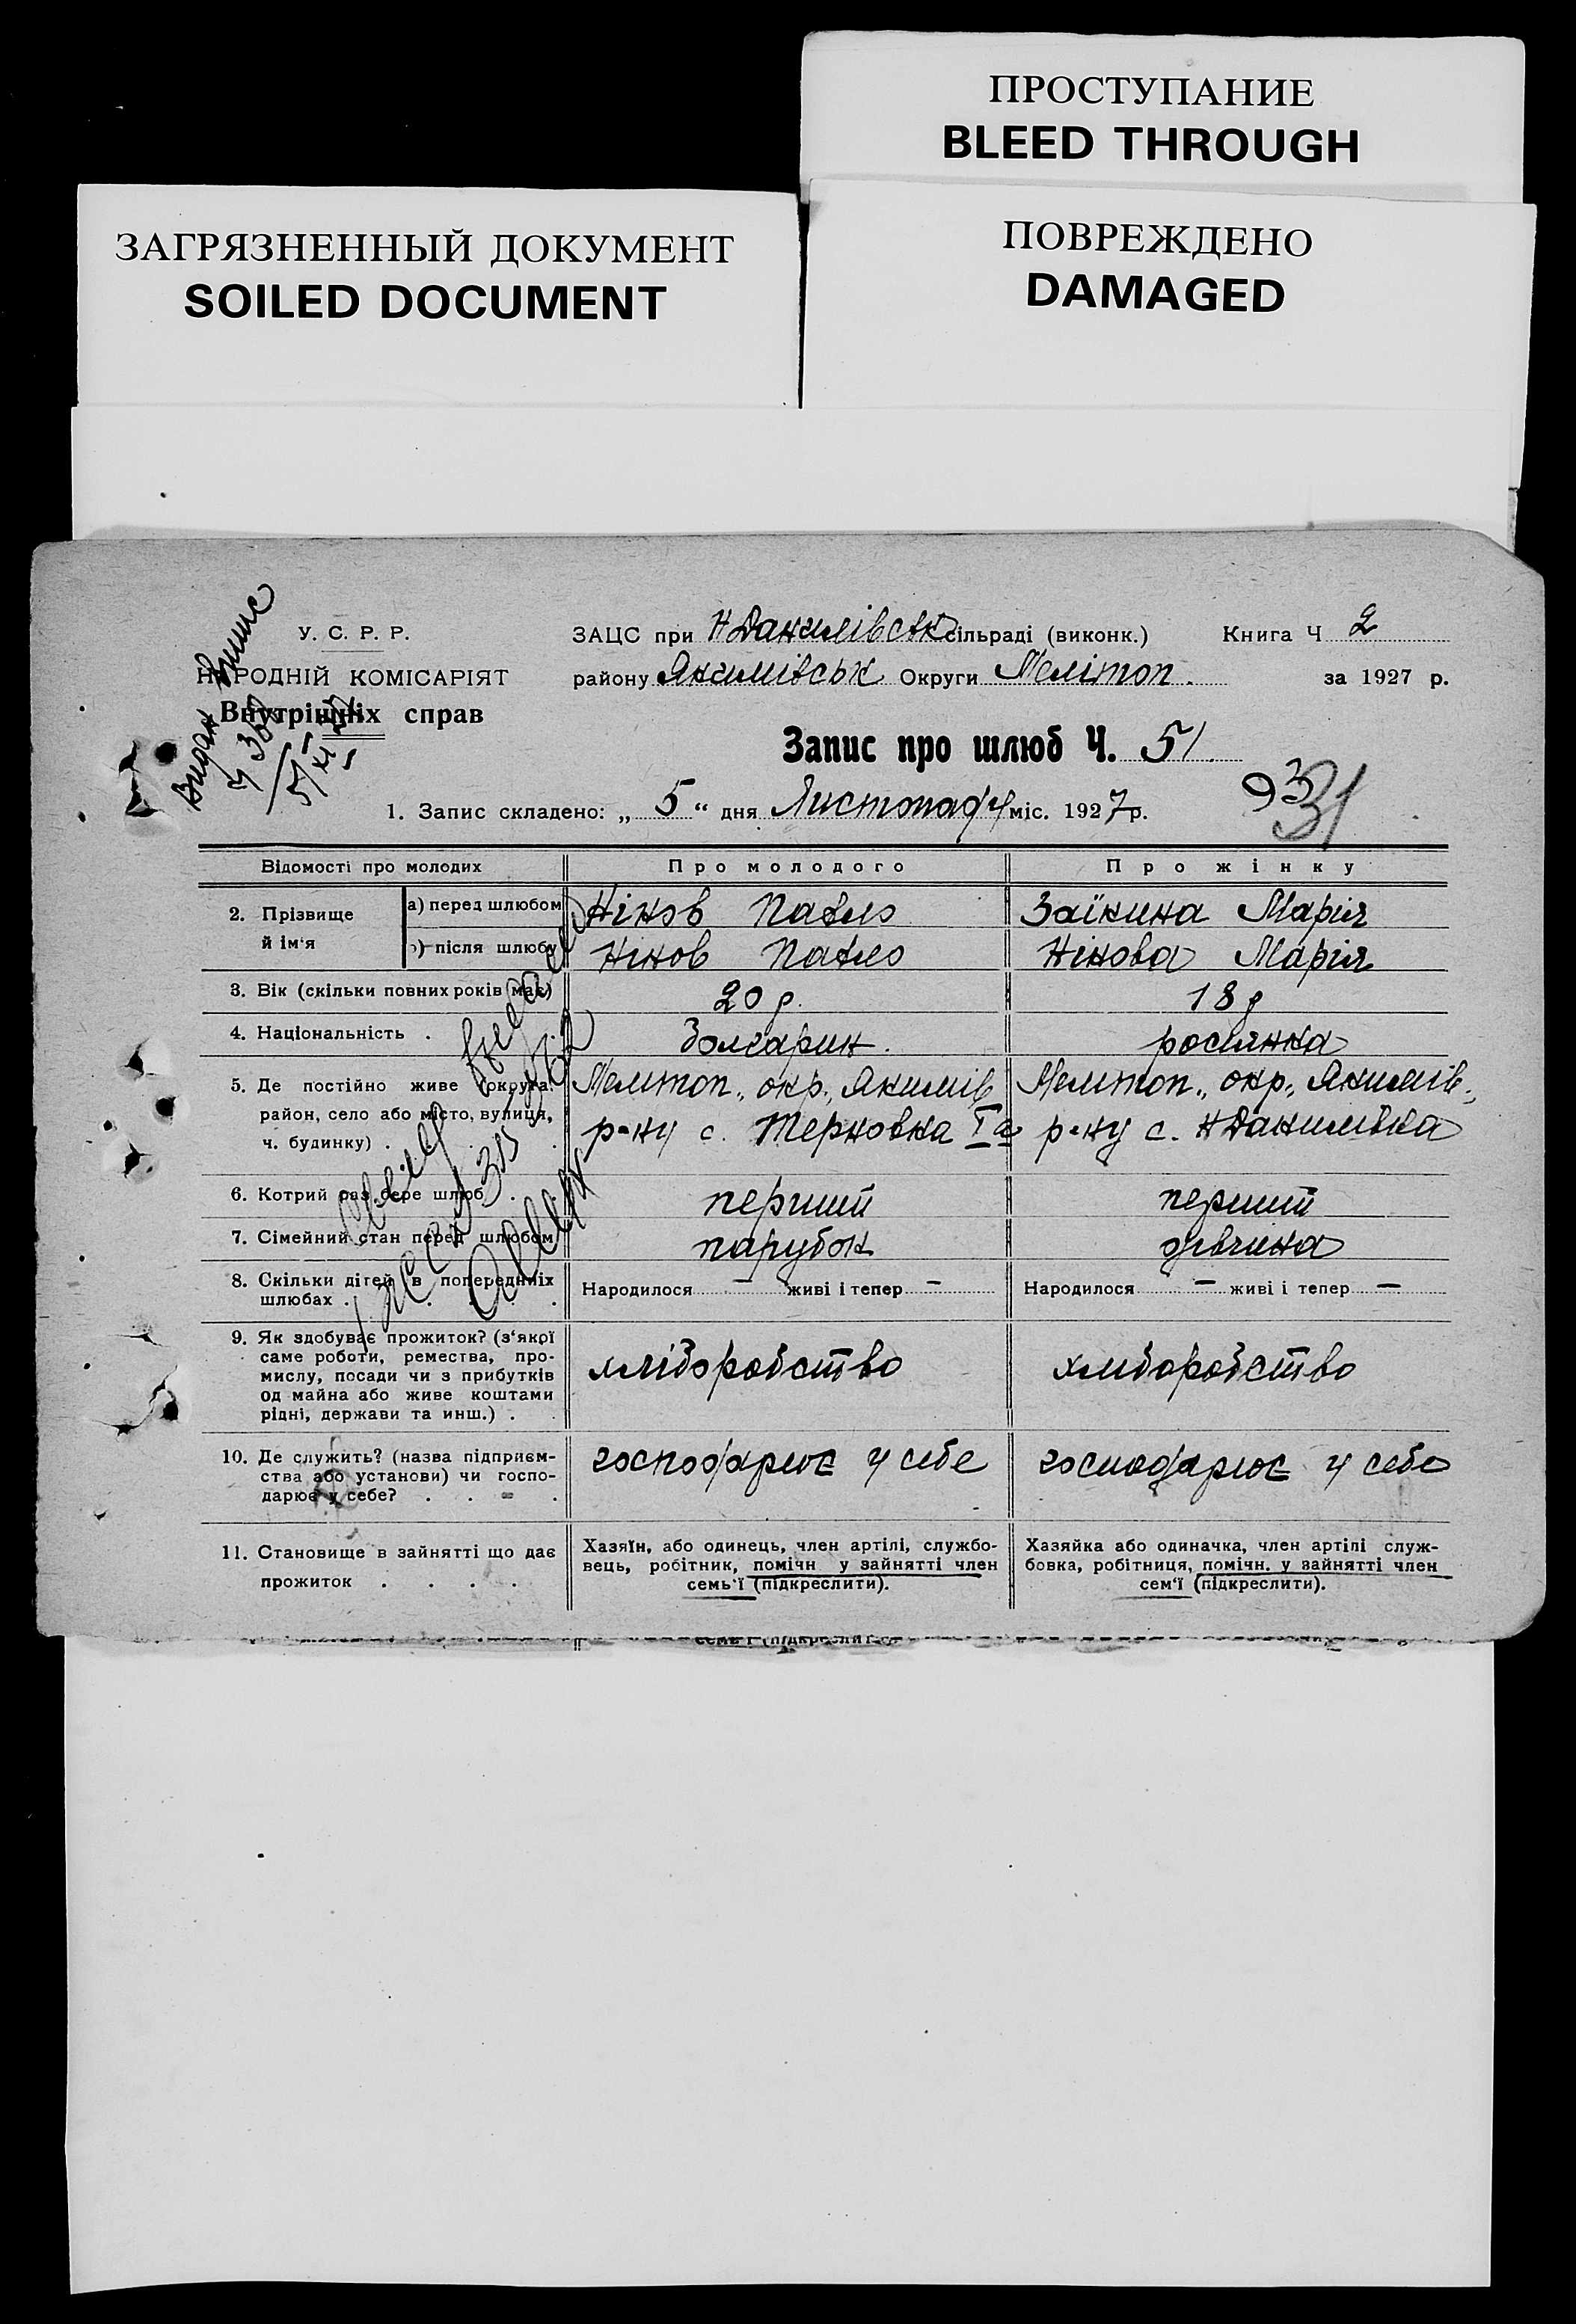 ПРОСТУПАНИЕ
BLEED THROUGH
ЗАГРЯЗНЕННЫЙ ДОКУМЕНТ
SOILED DOCUMENT
ПОВРЕЖДЕНО
DAMAGED
Видан Випис
У. С. Р. Р.
НАРОДНІЙ КОМІСАРІЯТ
Внутрішніх справ
ЗАЦС при Н Данилівськ сільраді (виконк.) Книга Ч 2
району Якимівськ Округи Мелітоп. за 1927 р.
Запис про шлюб Ч. 51
1. Запис складено: „ 5 “ дня Листопаду міс. 1927 р.
931
Відомості про молодих Про молодого Про жінку
2. Прізвище й ім'я
а) перед шлюбом Нінов Павло Заїкина Марія
б) після шлюбу Нінов Павло Нінова Марія
3. Вік (скільки повних років має) 20 р. 18 р
4. Національність . болгарин. росіянка
5. Де постійно живе (округа, Мелітоп., окр., Якимів Мелітоп., окр., Якимів.,
район, село або місто, вулиця, р-ну с. Терновка р-ну с. Н Данилівка
ч. будинку) .
6. Котрий раз бере шлюб . перший перший
7. Сімейний стан перед шлюбом парубок дівчина
8. Скільки дітей в попередніх
шлюбах . . . . Народилося — живі і тепер — Народилося — живі і тепер —
9. Як здобуває прожиток? (з'якої
саме роботи, ремества, про-
мислу, посади чи з прибутків
од майна або живе коштами
рідні, держави та инш.) .
хліборобство хліборобство
10. Де служить? (назва підприєм-
ства або установи) чи госпо-
дарює у себе? . . .
господарює у себе господарює у себе
11. Становище в зайнятті що дає
прожиток . . . .
Хазяїн, або одинець, член артілі, службо-
вець, робітник, помічн у зайнятті член
семь'ї (підкреслити).
Хазяйка або одиначка, член артілі служ-
бовка, робітниця, помічн. у зайнятті член
сем'ї (підкреслити).
семь'ї (підкреслити).